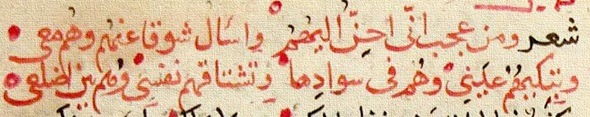 شعر ومن عجب انّي احنّ اليهم واسأل شوقا عنهم وهم معي
وتبكيهم عيني وهم في سوادها وتشتاقهم نفسي وهم بين اضلعي